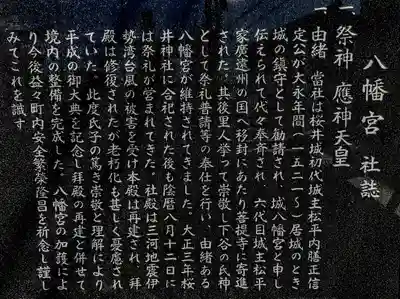 八幡宮 社誌
一、祭神 應神天皇
一、由緒 當社は桜井城初代城主松平内膳正信
定公が大永年間(一五二一〜)居城のとき
城の鎮守として勧請され、城八幡宮と申し
伝えられて代々奉斉され、六代目城主松平
家廣遠州の国へ移封にあたり菩提寺に寄進
された。其後里人挙って崇敬し下谷の氏神
として祭礼普請等の奉仕を行い、由緒ある
八幡宮が維持されてきました。大正三年桜
井神社に合祀された後も陰暦八月十二日に
は祭礼が営まれてきた。社殿は三河地震伊
勢湾台風の被害を受け本殿は再建され、拝
殿は修復されたが老朽化も甚しく憂慮され
ていた。此度氏子の篤き崇敬と理解により
平成の御大典を記念し拝殿の再建と併せて
境内の整備を完成した。八幡宮の加護によ
り今後益々町内安全繁榮隆昌を祈念し謹し
みてこれを識す。